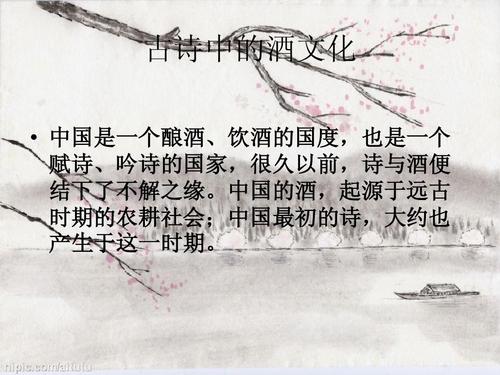 古诗中的酒文化
• 中国是一个酿酒、饮酒的国度，也是一个
赋诗、吟诗的国家，很久以前，诗与酒便
结下了不解之缘。中国的酒，起源于远古
时期的农耕社会；中国最初的诗，大约也
产生于这一时期。
nipic.com/aitutu